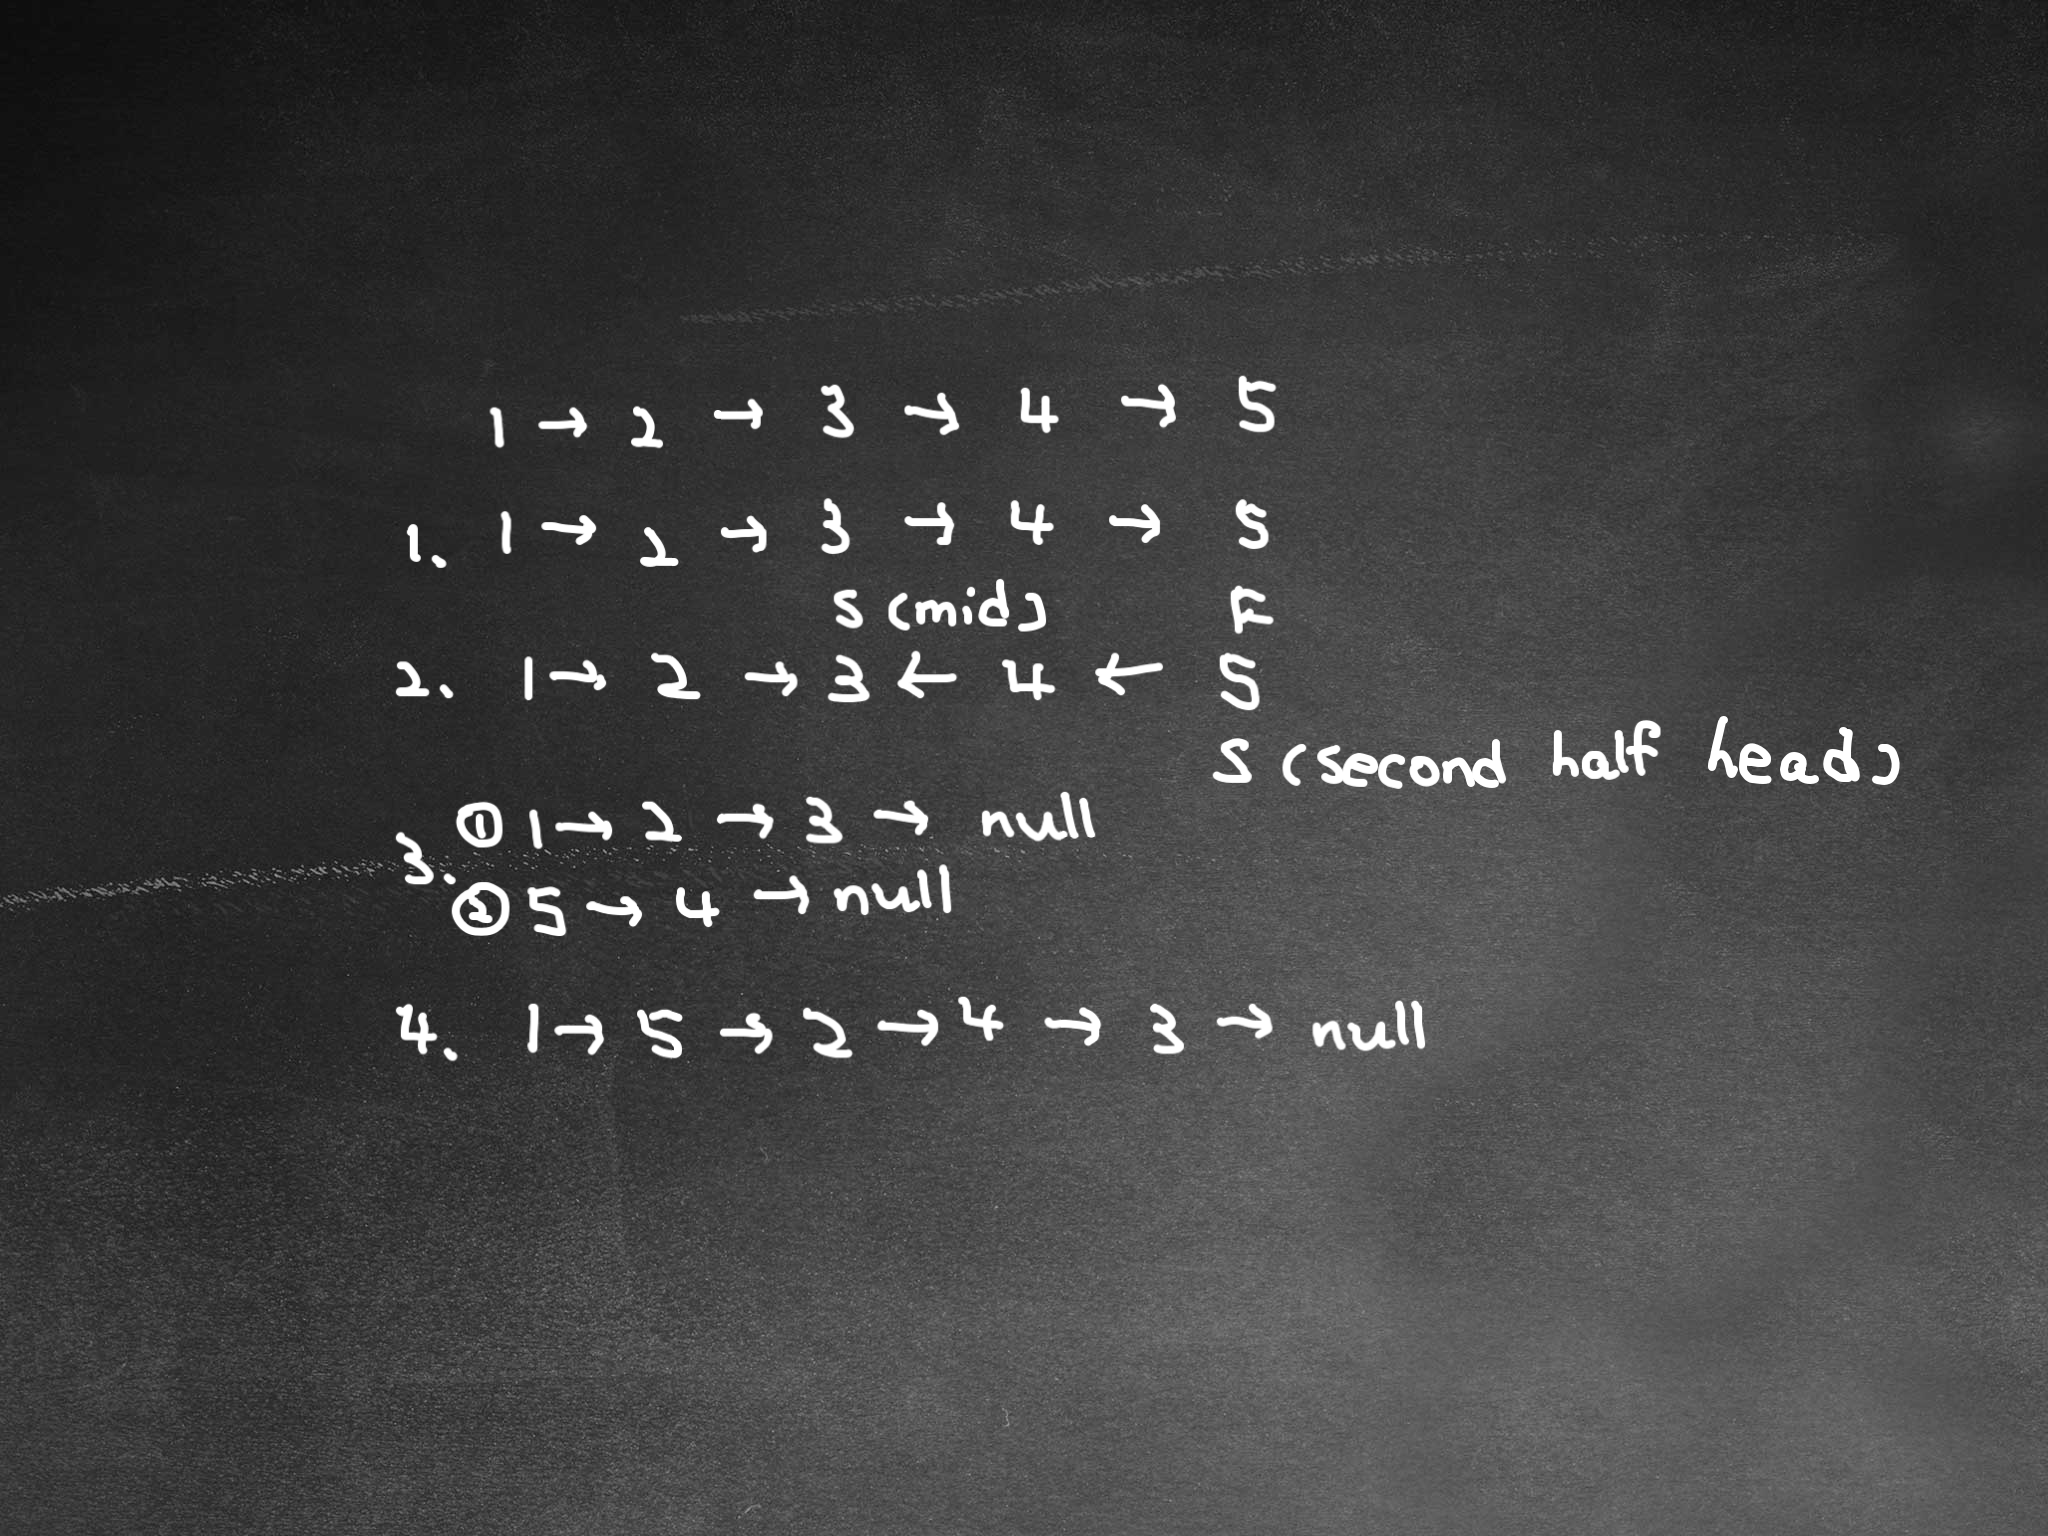 1 → 2 → 3 → 4 → 5
1. 1 → 2 → 3 → 4 → 5
S (mid) F
2. 1 → 2 → 3 ← 4 ← 5
S (second half head)
3. ① 1 → 2 → 3 → null
② 5 → 4 → null
4. 1 → 5 → 2 → 4 → 3 → null